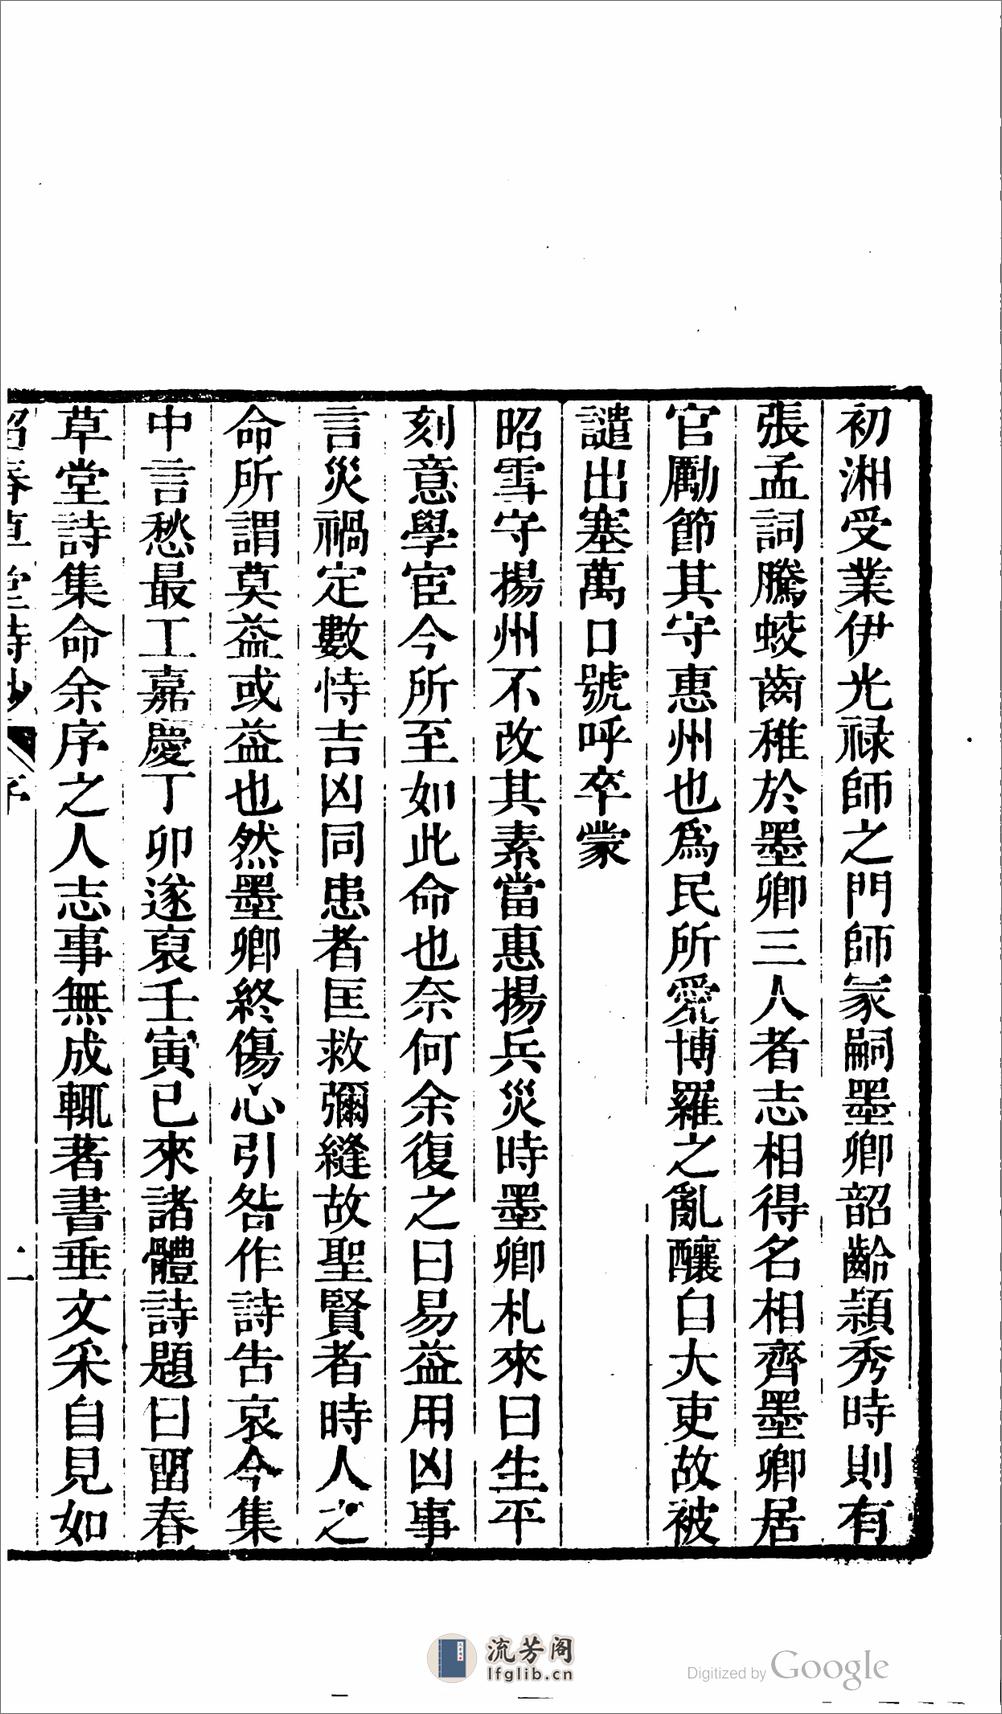 初湘受業伊光祿師之門師冢嗣墨卿韶齡頴秀時則有
張孟詞騰蛟齒稚於墨卿三人者志相得名相齊墨卿居
官勵節其守惠州也爲民所愛博羅之亂釀自大吏故被
譴出塞萬口號呼卒蒙
昭雪守揚州不改其素當惠揚兵災時墨卿札來曰生平
刻意學宦今所至如此命也奈何余復之曰易益用凶事
言災禍定數恃吉凶同患者匡救彌縫故聖賢者時人之
命所謂莫益或益也然墨卿終傷心引咎作詩告哀今集
中言愁最工嘉慶丁卯遂裒壬寅已來諸體詩題曰畱春
草堂詩集命余序之人志事無成輒著書垂文采自見如
畱春草堂詩鈔 序 一
流芳阁
lfglib.cn
Digitized by Google